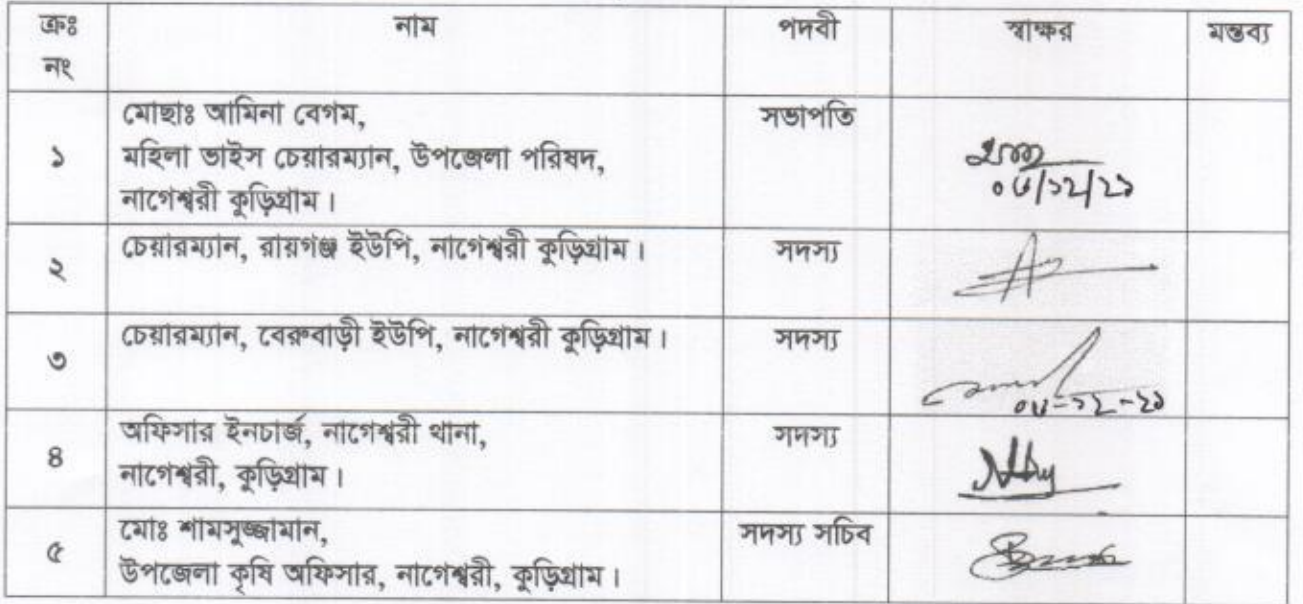 ক্রঃ নং নাম পদবী স্বাক্ষর মন্তব্য
মোছাঃ আমিনা বেগম, সভাপতি
১ মহিলা ভাইস চেয়ারম্যান, উপজেলা পরিষদ,
নাগেশ্বরী কুড়িগ্রাম।
০৬/১২/২১
২ চেয়ারম্যান, রায়গঞ্জ ইউপি, নাগেশ্বরী কুড়িগ্রাম। সদস্য
৩ চেয়ারম্যান, বেরুবাড়ী ইউপি, নাগেশ্বরী কুড়িগ্রাম। সদস্য
০৬-১২-২১
৪ অফিসার ইনচার্জ, নাগেশ্বরী থানা, সদস্য
নাগেশ্বরী, কুড়িগ্রাম।
৫ মোঃ শামসুজ্জামান, সদস্য সচিব
উপজেলা কৃষি অফিসার, নাগেশ্বরী, কুড়িগ্রাম।